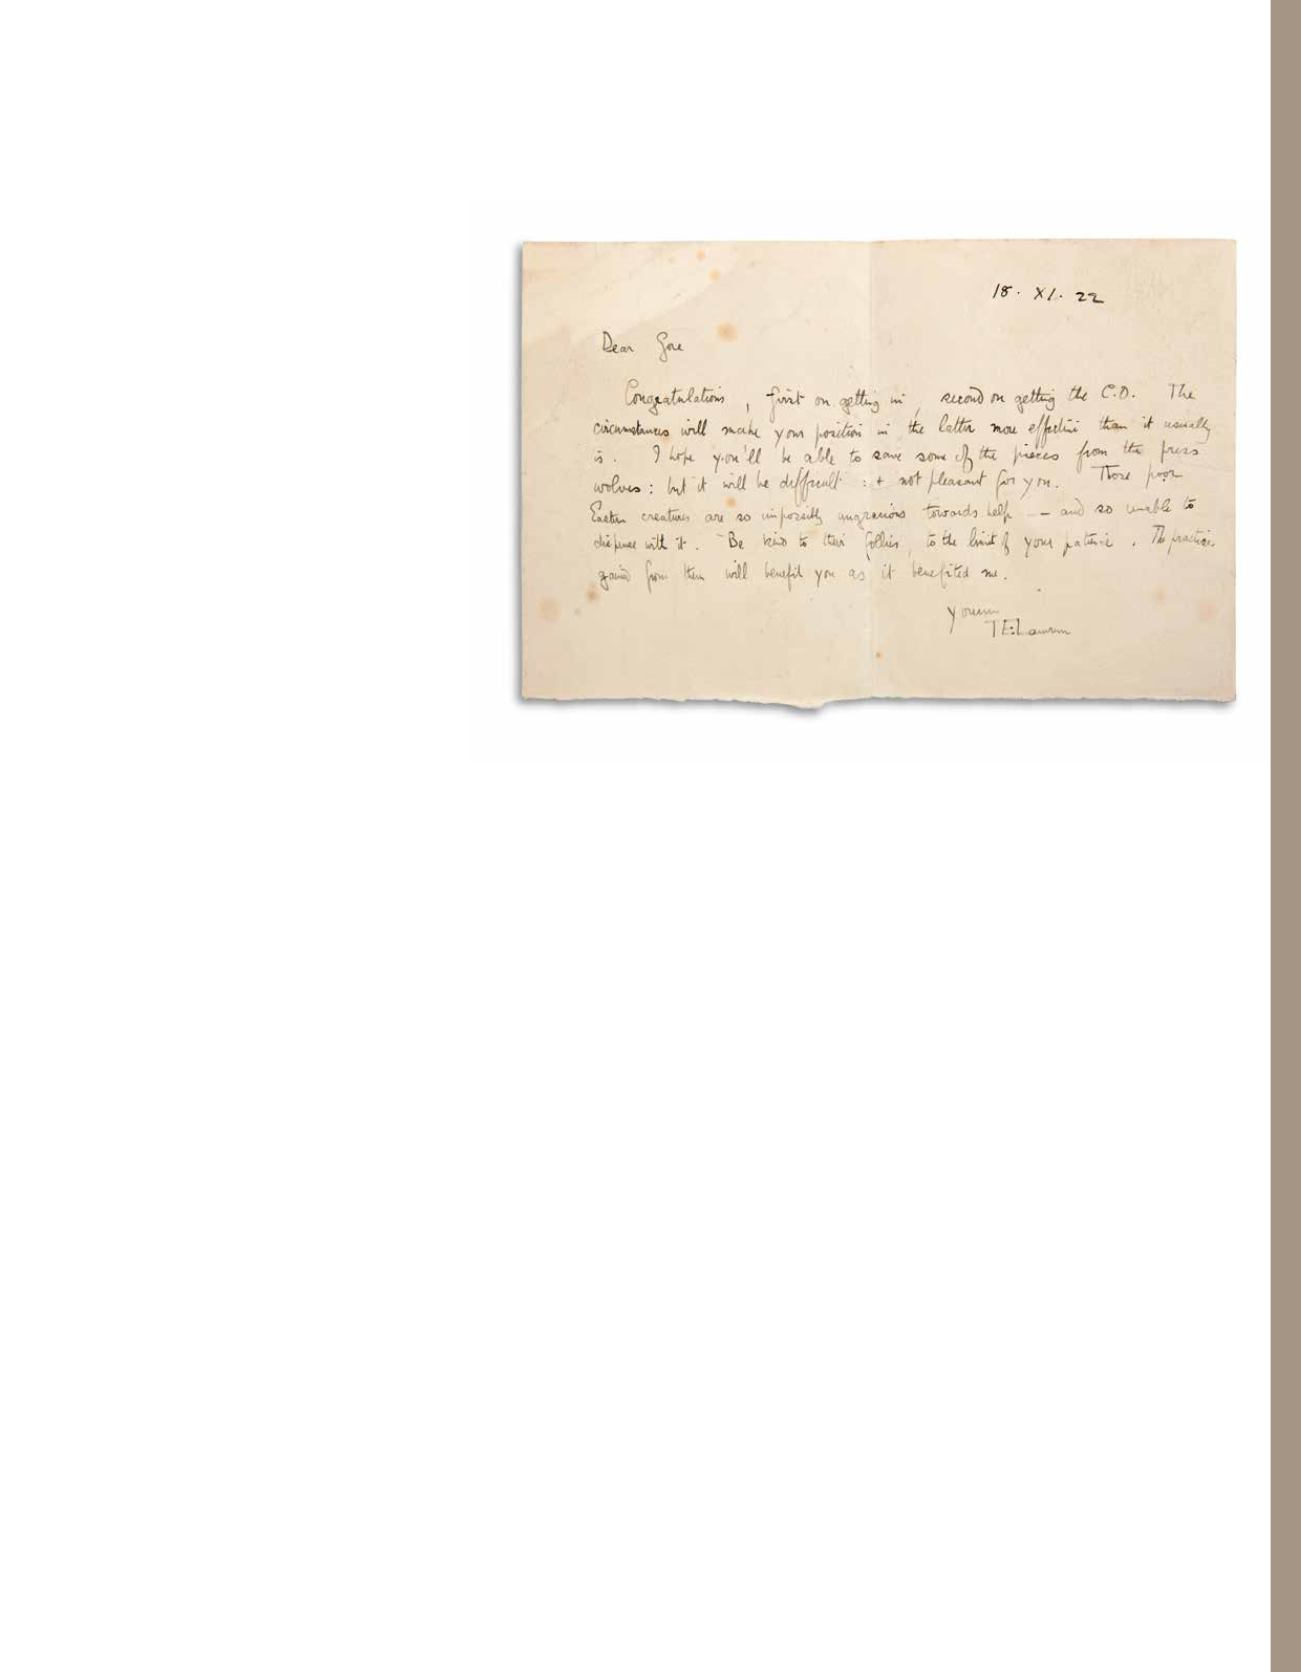 18. XI. 22
Dear Gore
Congratulations, first on getting in, second on getting the C.O. The
circumstances will make your position in the latter more effective than it usually
is. I hope you'll be able to save some of the pieces from the press
wolves: but it will be difficult: + not pleasant for you. Those poor
Eastern creatures are so impossibly ungracious towards help — and so unable to
dispense with it. Be kind to their follies, to the limit of your patience. The practice
gained from them will benefit you as it benefited me.
Yours
TELawrence